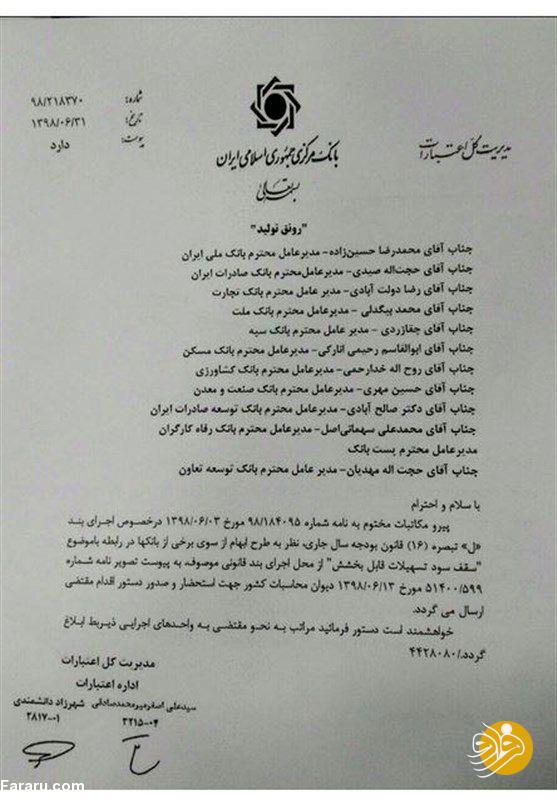 شماره: ۹۸/۲۱۸۳۷۰
تاریخ: ۱۳۹۸/۰۶/۳۱
پیوست: دارد
بانک مرکزی جمهوری اسلامی ایران
مدیریت کل اعتبارات
بسمه تعالی
"رونق تولید"
جناب آقای محمدرضا حسین‌زاده- مدیرعامل محترم بانک ملی ایران
جناب آقای حجت‌اله صیدی- مدیرعامل‌محترم بانک صادرات ایران
جناب آقای رضا دولت آبادی- مدیر عامل محترم بانک تجارت
جناب آقای محمد بیگدلی - مدیرعامل محترم بانک ملت
جناب آقای چقازردی - مدیر عامل محترم بانک سپه
جناب آقای ابوالقاسم رحیمی انارکی- مدیرعامل محترم بانک مسکن
جناب آقای روح اله خدارحمی- مدیرعامل محترم بانک کشاورزی
جناب آقای حسین مهری- مدیرعامل محترم بانک صنعت و معدن
جناب آقای دکتر صالح آبادی- مدیرعامل محترم بانک توسعه صادرات ایران
جناب آقای محمدعلی سهمانی‌اصل- مدیرعامل محترم بانک رفاه کارگران
مدیرعامل محترم پست بانک
جناب آقای حجت اله مهدیان- مدیرعامل محترم بانک توسعه تعاون
با سلام و احترام
پیرو مکاتبات مختوم به نامه شماره ۹۸/۱۸۴۰۹۵ مورخ ۱۳۹۸/۰۶/۰۳ درخصوص اجرای بند
«ل» تبصره (۱۶) قانون بودجه سال جاری، نظر به طرح ابهام از سوی برخی از بانکها در رابطه باموضوع
"سقف سود تسهیلات قابل بخشش" از محل اجرای بند قانونی موصوف، به پیوست تصویر نامه شماره
۵۱۴۰۰/۵۹۹ مورخ ۱۳۹۸/۰۶/۱۳ دیوان محاسبات کشور جهت استحضار و صدور دستور اقدام مقتضی
ارسال می گردد.
خواهشمند است دستور فرمائید مراتب به نحو مقتضی به واحدهای اجرایی ذیربط ابلاغ
گردد./۴۴۲۸۰۸۰
مدیریت کل اعتبارات
اداره اعتبارات
سیدعلی اصغر میرمحمدصادقی شهرزاد دانشمندی
۳۲۱۵-۰۴ ۲۸۱۷-۰۱
فرارو
Fararu.com